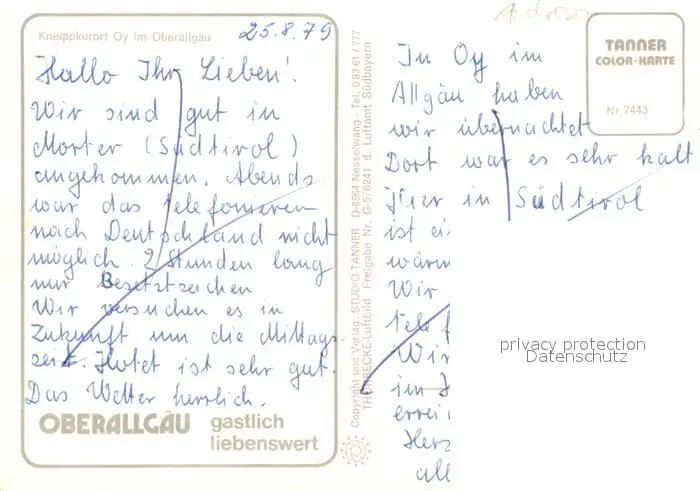 Kneippkurort Oy im Oberallgäu
25.8.79
Hallo Ihr Lieben!
Wir sind gut in
Morter (Südtirol)
angekommen. Abends
war das telefonieren
nach Deutschland nicht
möglich. 2 Stunden lang
nur Besetztzeichen
Wir versuchen es in
Zukunft um die Mittags-
zeit. Hotel ist sehr gut.
Das Wetter herrlich.
OBERALLGÄU
gastlich
liebenswert
Copyright und Verlag: STUDIO TANNER D-8964 Nesselwang - Tel. 0 83 61 / 777
THORBECKE-Luftbild Freigabe Nr. G-5/6241 d. Luftamt Südbayern
TANNER
COLOR-KARTE
Nr. 7443
In Oy im
Allgäu haben
wir übernachtet
Dort war es sehr kalt
Hier in Südtirol
ist
wärm
Wir
telef
Wir
im
errei
Herz
all
privacy protection
Datenschutz